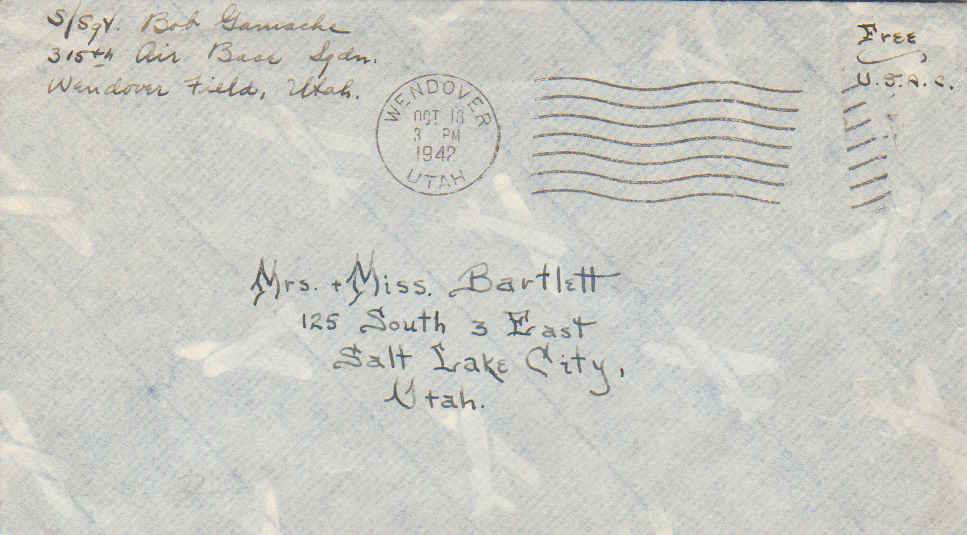 S/Sgt. Bob Gamache
315th Air Base Sqdn.
Wendover Field, Utah.
Free
U.S.A.C.
WENDOVER
OCT 13
3 PM
1942
UTAH
Mrs. + Miss. Bartlett
125 South 3 East
Salt Lake City,
Utah.